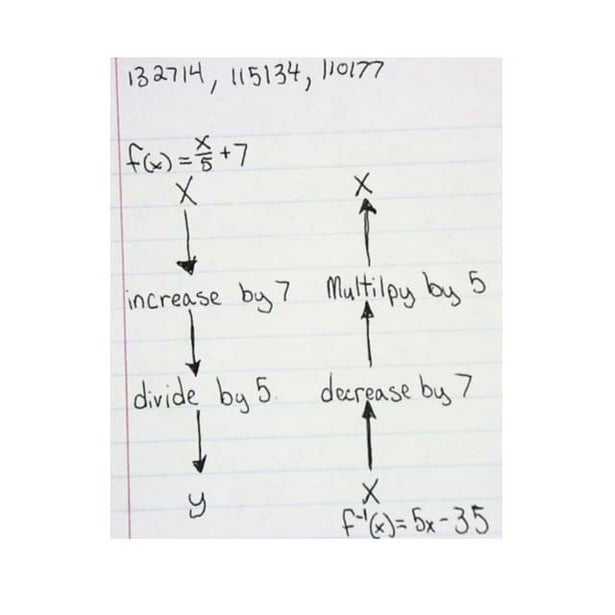 132714, 115134, 110177
f(x) = x/5 + 7
X X
increase by 7 Multilpy by 5
divide by 5. decrease by 7
y X
f⁻¹(x) = 5x - 35